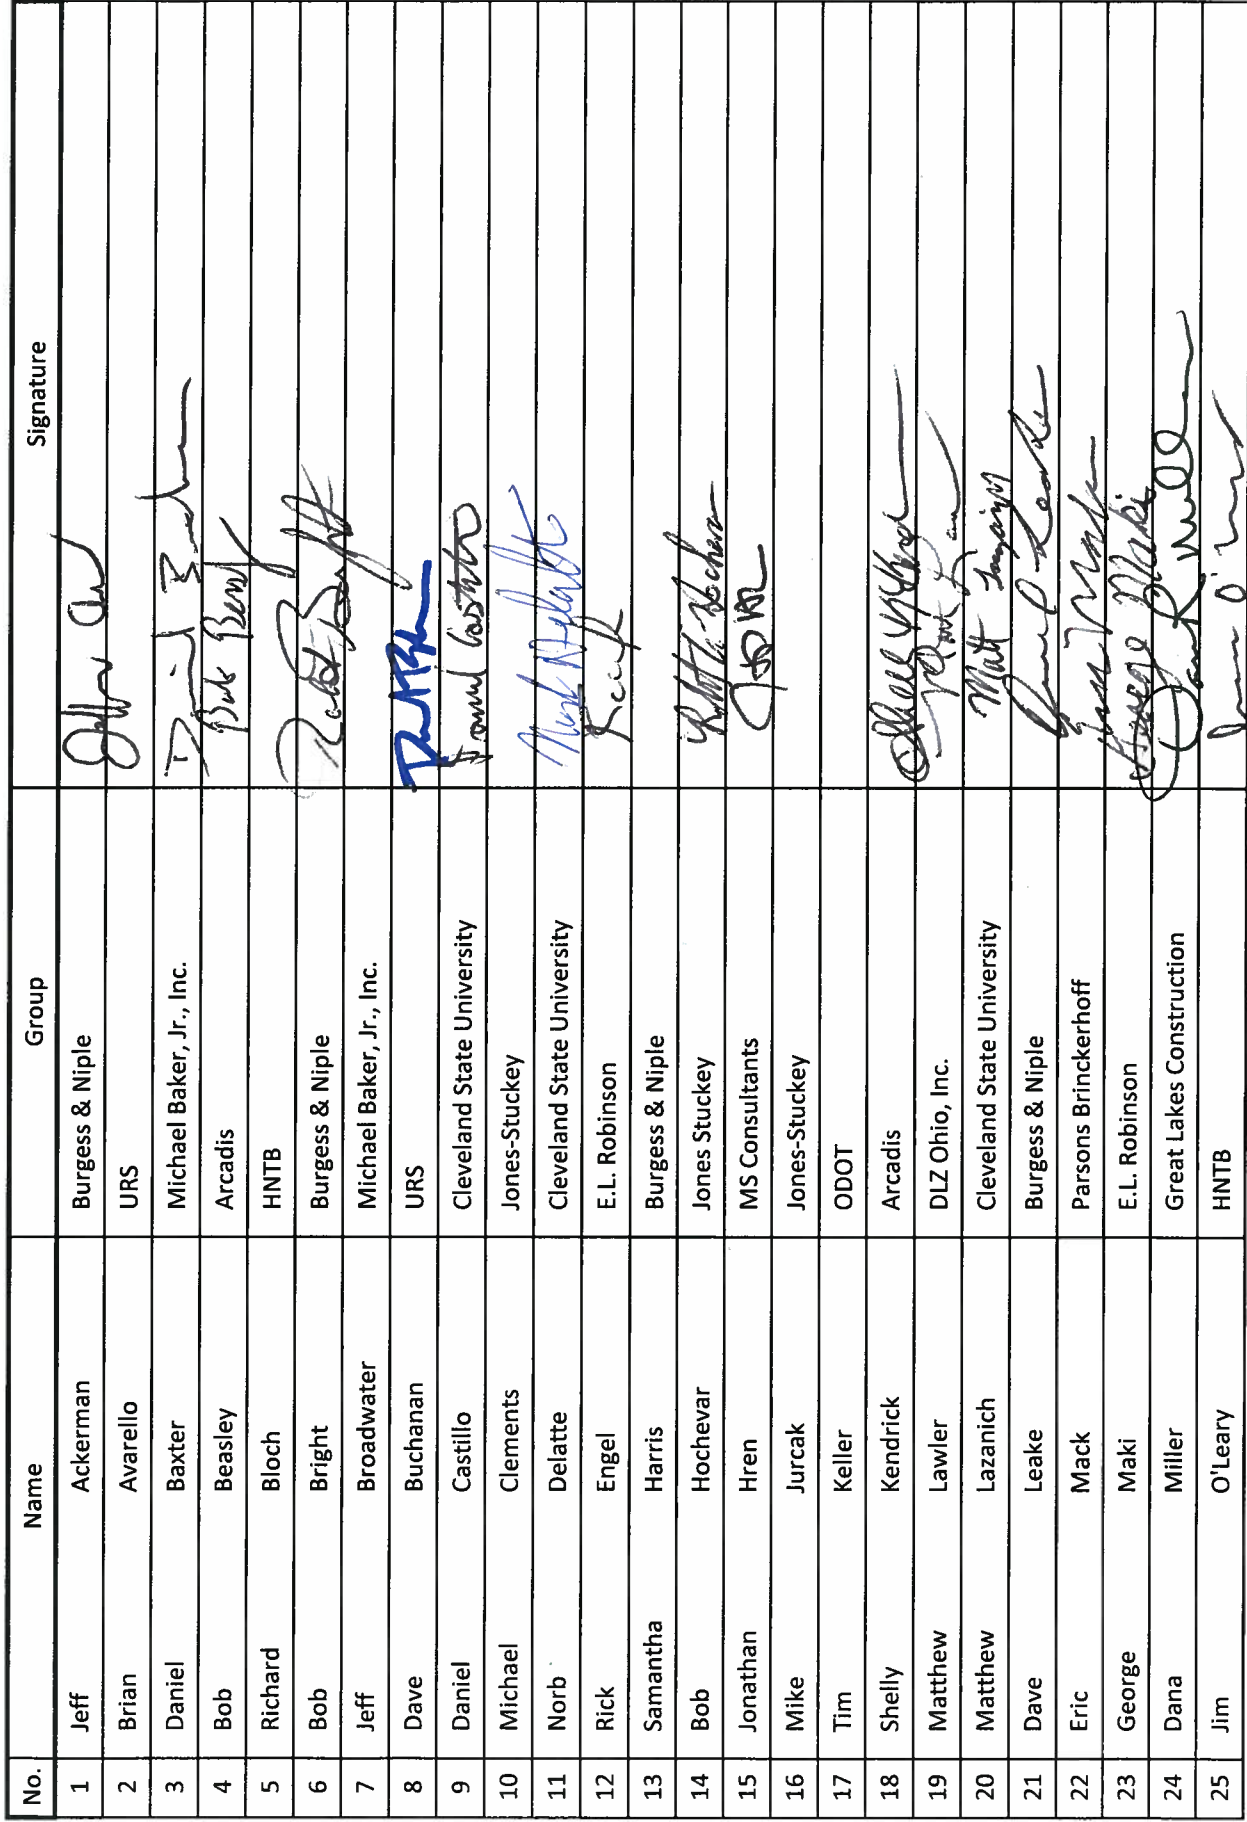 No. Name Group Signature
1 Jeff Ackerman Burgess & Niple
2 Brian Avarello URS
3 Daniel Baxter Michael Baker, Jr., Inc.
4 Bob Beasley Arcadis
5 Richard Bloch HNTB
6 Bob Bright Burgess & Niple
7 Jeff Broadwater Michael Baker, Jr., Inc.
8 Dave Buchanan URS
9 Daniel Castillo Cleveland State University Daniel Castillo
10 Michael Clements Jones-Stuckey
11 Norb Delatte Cleveland State University Norb Delatte
12 Rick Engel E.L. Robinson
13 Samantha Harris Burgess & Niple
14 Bob Hochevar Jones Stuckey
15 Jonathan Hren MS Consultants
16 Mike Jurcak Jones-Stuckey
17 Tim Keller ODOT
18 Shelly Kendrick Arcadis
19 Matthew Lawler DLZ Ohio, Inc.
20 Matthew Lazanich Cleveland State University Matt
21 Dave Leake Burgess & Niple
22 Eric Mack Parsons Brinckerhoff
23 George Maki E.L. Robinson George Maki
24 Dana Miller Great Lakes Construction
25 Jim O'Leary HNTB